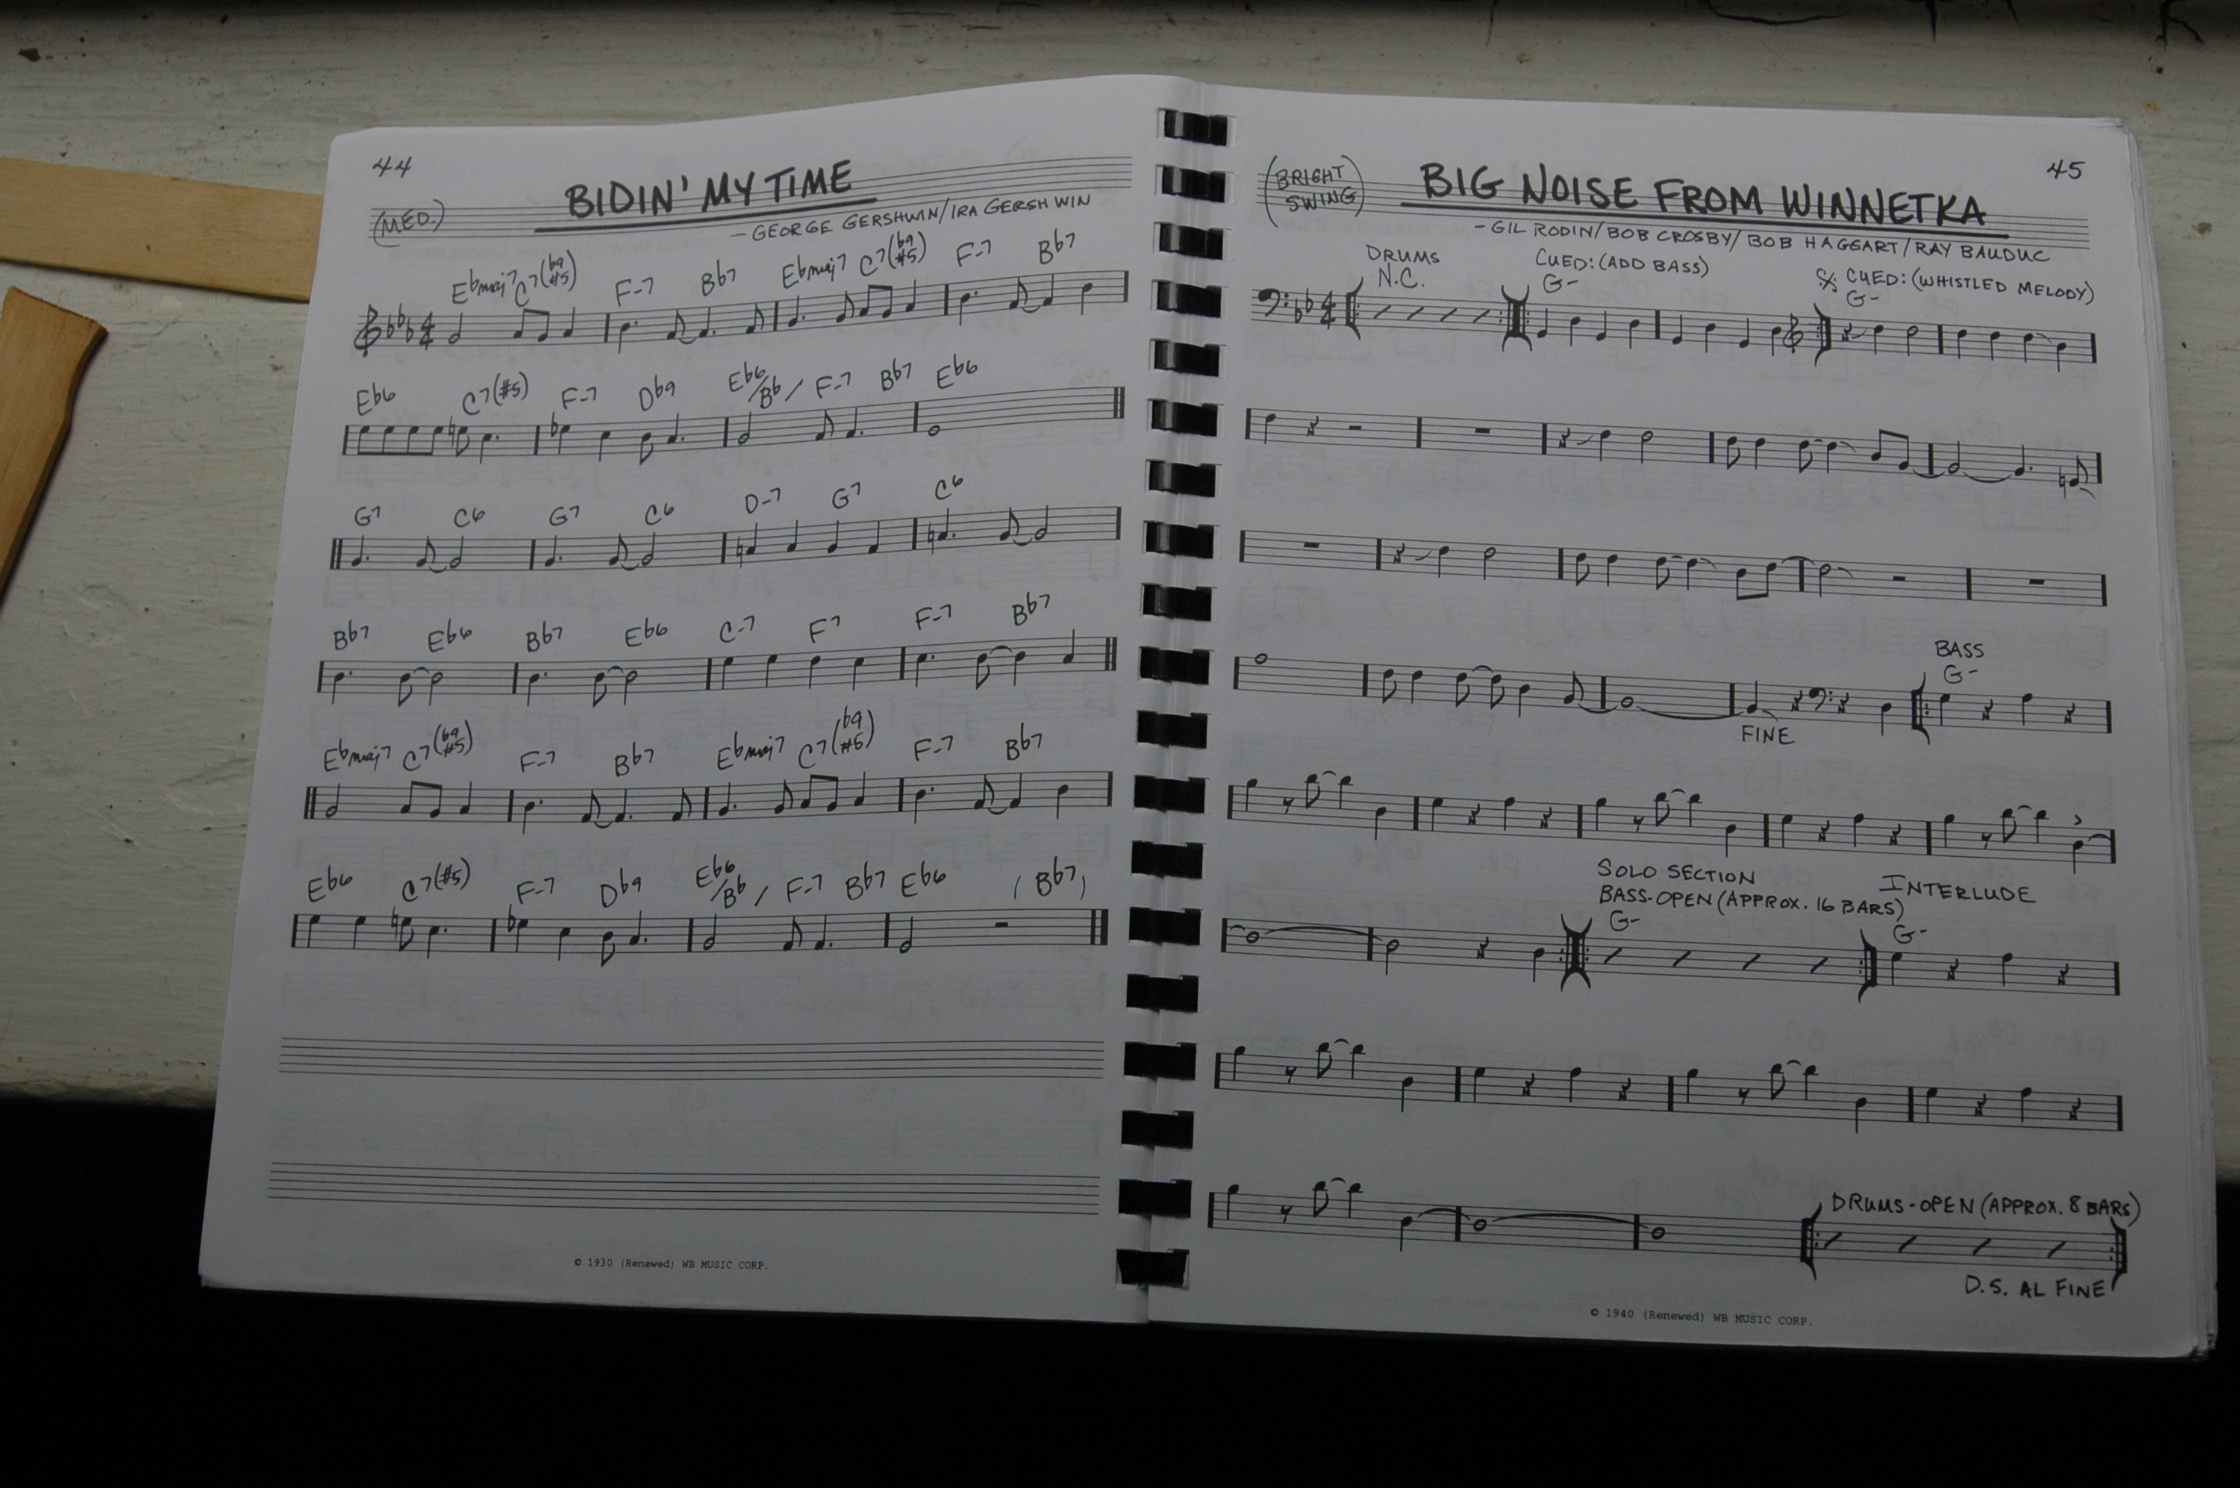 44
BIDIN' MY TIME
(MED.)
- GEORGE GERSHWIN/IRA GERSHWIN
Ebmaj7 C7(b9 #5) F-7 Bb7 Ebmaj7 C7(b9 #5) F-7 Bb7
Eb6 C7(#5) F-7 Db9 Eb6/Bb / F-7 Bb7 Eb6
G7 C6 G7 C6 D-7 G7 C6
Bb7 Eb6 Bb7 Eb6 C-7 F7 F-7 Bb7
Ebmaj7 C7(b9 #5) F-7 Bb7 Ebmaj7 C7(b9 #5) F-7 Bb7
Eb6 C7(#5) F-7 Db9 Eb6/Bb / F-7 Bb7 Eb6 (Bb7)
© 1930 (Renewed) WB MUSIC CORP.
45
(BRIGHT SWING)
BIG NOISE FROM WINNETKA
- GIL RODIN/BOB CROSBY/BOB HAGGART/RAY BAUDUC
DRUMS CUED: (ADD BASS) CUED: (WHISTLED MELODY)
N.C. G- G-
BASS
G-
FINE
SOLO SECTION
BASS-OPEN (APPROX. 16 BARS) INTERLUDE
G- G-
DRUMS-OPEN (APPROX. 8 BARS)
D.S. AL FINE
© 1940 (Renewed) WB MUSIC CORP.